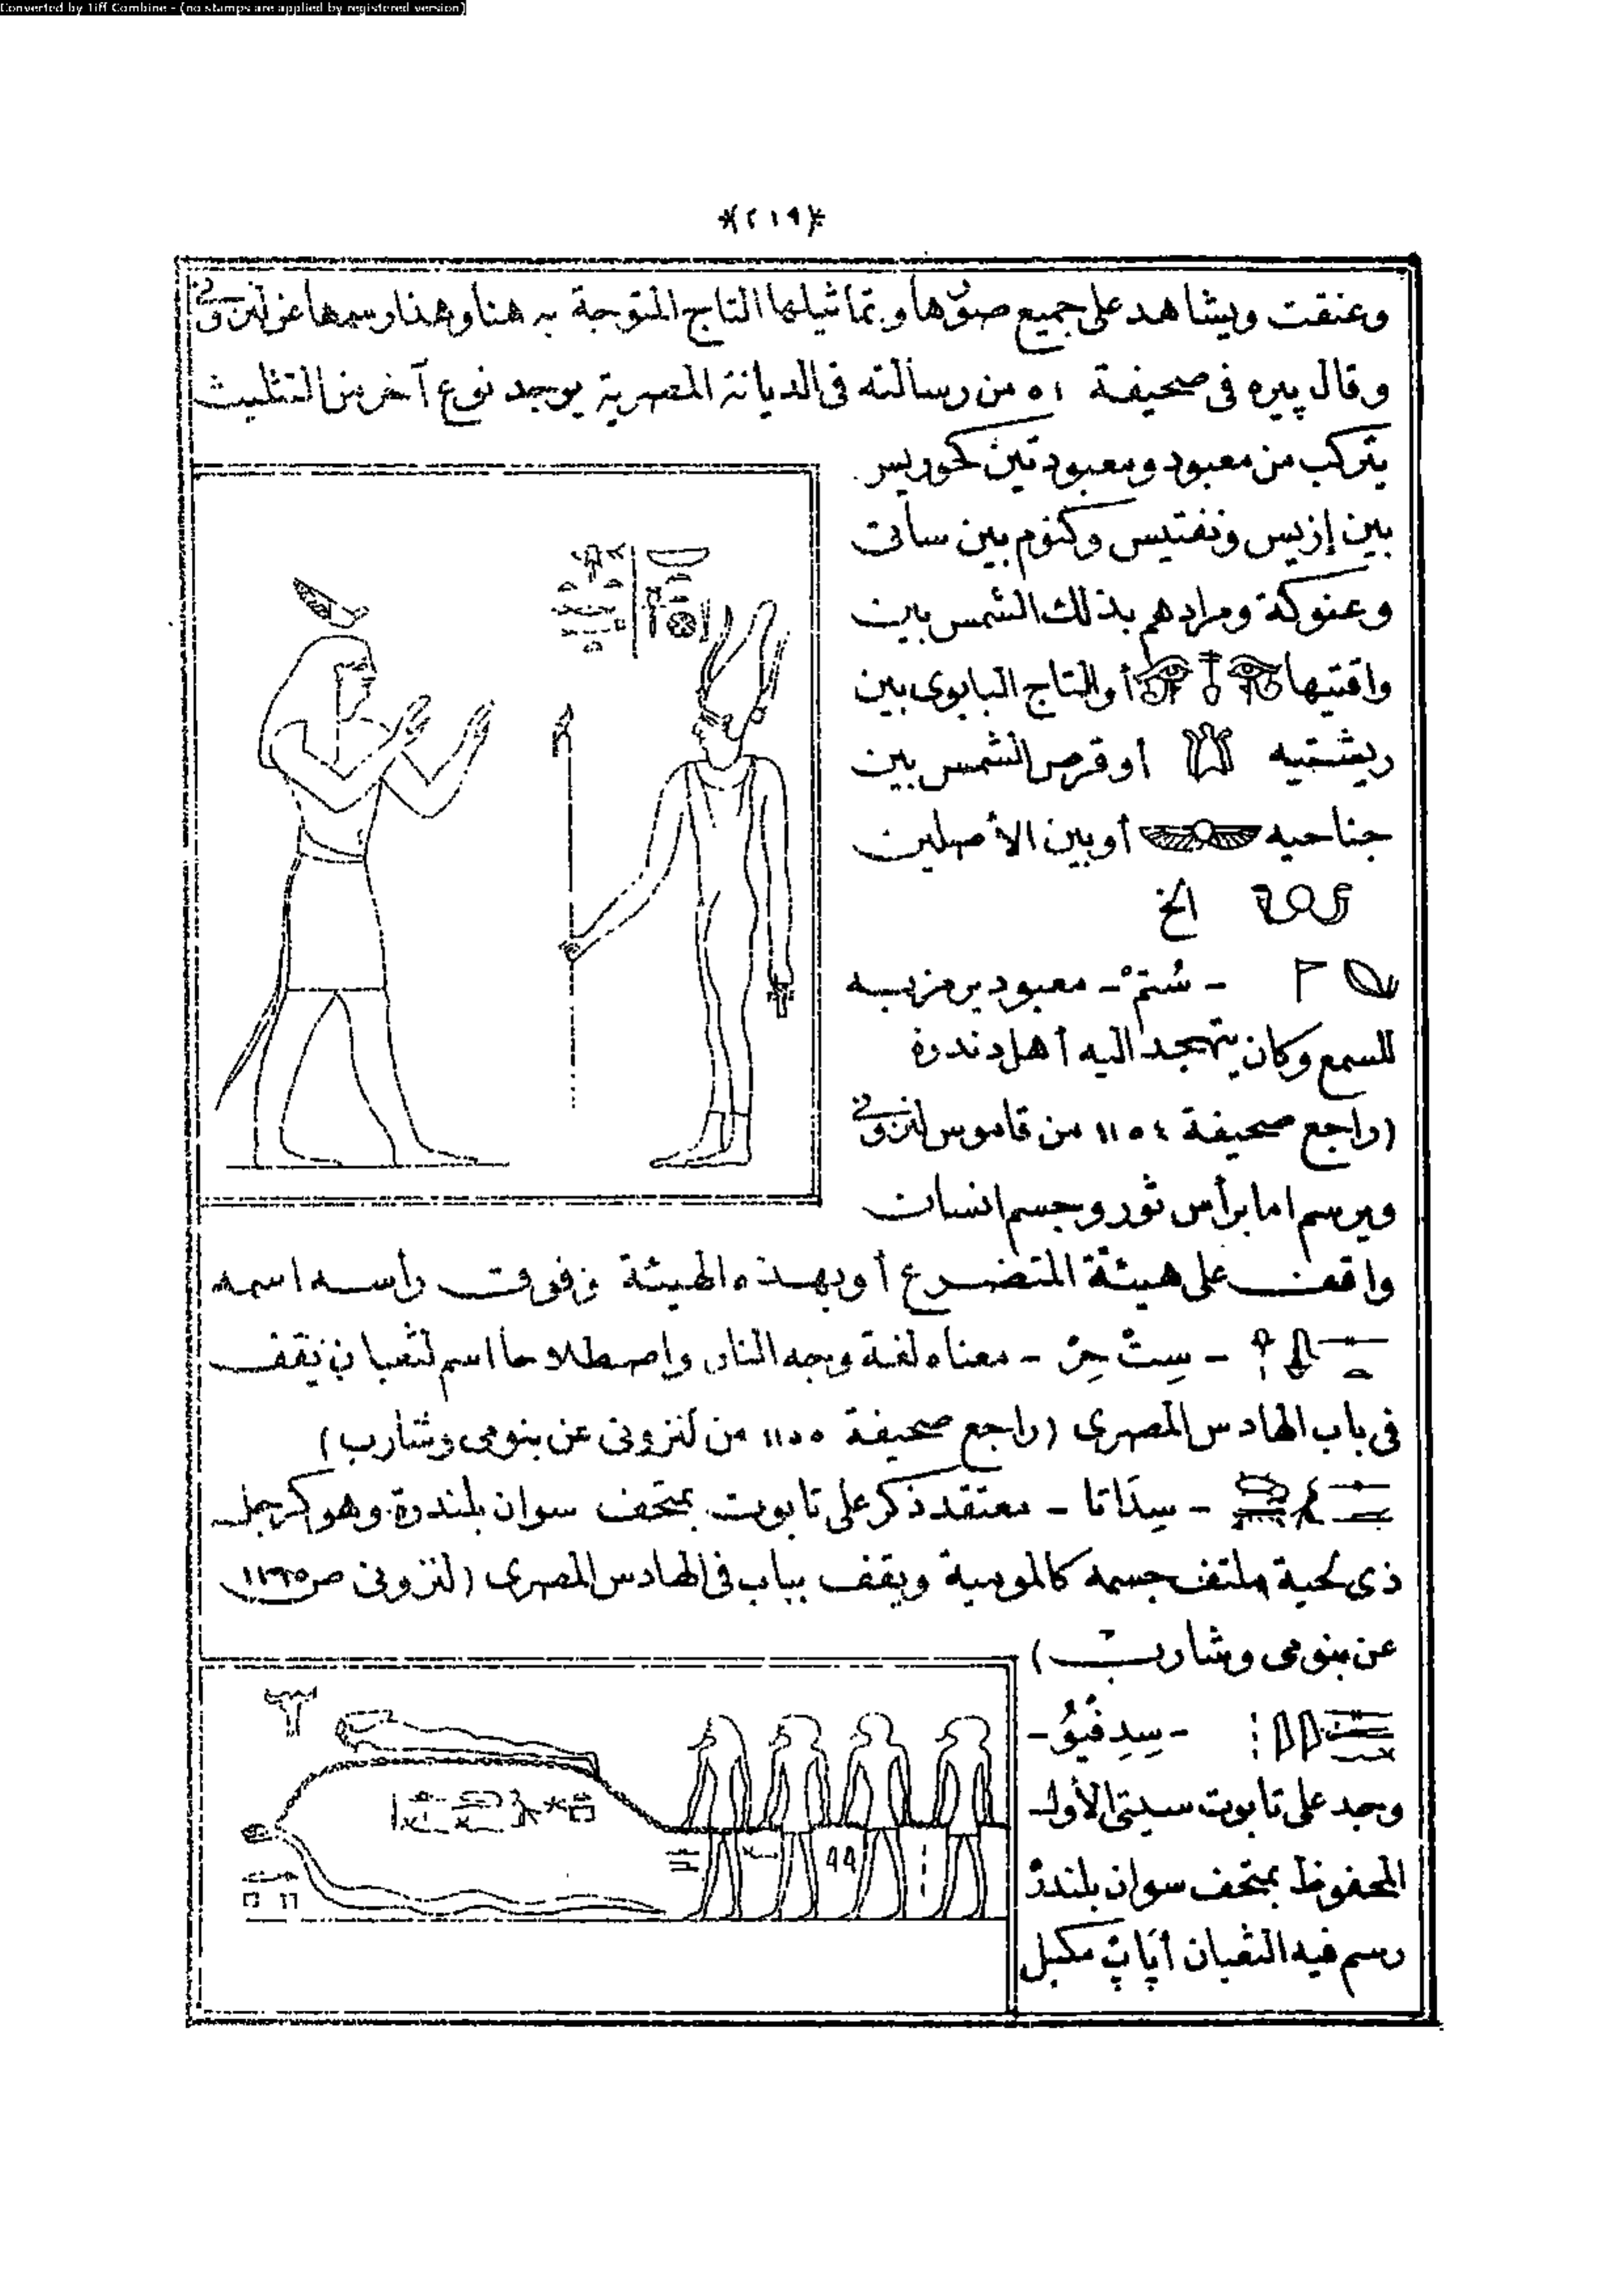 Converted by Tiff Combine - (no stamps are applied by registered version)
*(٢١٩)*
وعنقت ويشاهد على جميع صوّرها وتماثيلها التاج المتوجة به هنا وهذا رسمها عن لنزوني
وقال پيره في صحيفة ٥١ من رسالته في الديانة المصرية يوجد نوع آخر من التثليث
يتركب من معبود ومعبودتين كحوريس
بين إزيس ونفتيس وكنوم بين ساتى
وعنوكة ومرادهم بذلك الشمس بين
واقتيها أو التاج البابوى بين
ريشتيه أو قرص الشمس بين
جناحيه أو بين الأصلين
الخ
- سُتمْ - معبود يرمز به
للسمع وكان يتهجد اليه أهل دندرة
(راجع صحيفة ١١٥٤ من قاموس لنزوني
ويرسم اما برأس ثور وجسم انسان
واقف على هيئة المتضرع أو بهذه الهيئة وفوق رأسه اسمه
- سِتْ حِرْ - معناه لغة وجه النار واصطلاحا اسم لثعبان يقف
في باب الهادس المصرى (راجع صحيفة ١١٥٥ من لنزونى عن بنومى وشارب)
- سِدَاتا - معتقد ذكر على تابوت بمتحف سوان بلندرة وهو كرجل
ذى لحية ملتف جسمه كالمومية ويقف بباب في الهادس المصرى (لنزونى ص
عن بنومى وشارب)
- سِدِفيُو -
وجد على تابوت سيتى الأول
المحفوظ بمتحف سوان بلندرة
رسم فيه الثعبان أپاپ مكبل